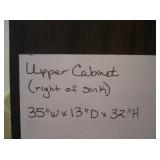 Upper Cabinet
(right of sink)
35"W x 13"D x 32"H